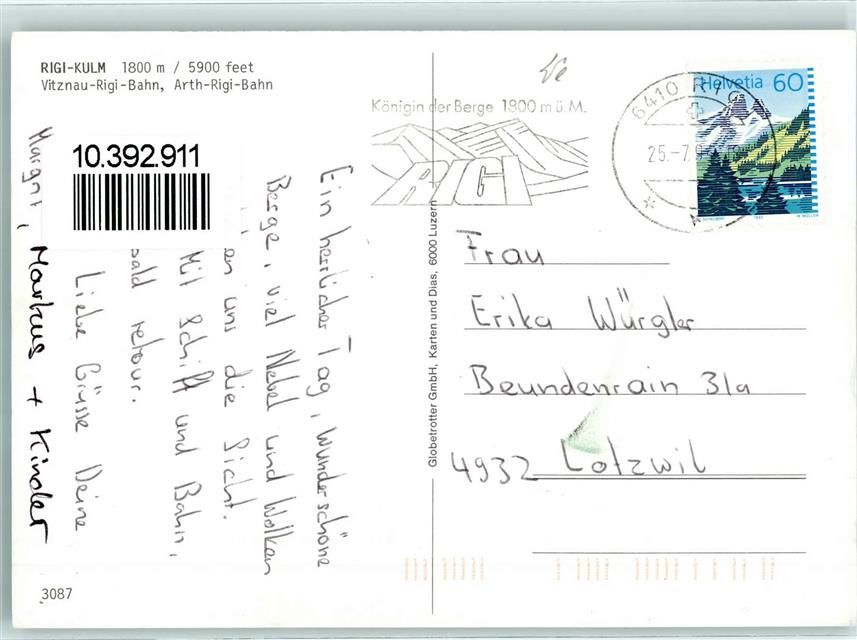 RIGI-KULM 1800 m / 5900 feet
Vitznau-Rigi-Bahn, Arth-Rigi-Bahn
10.392.911
Ein herrlicher Tag, wunderschöne
Berge, viel Nebel und Wolken
uns die Sicht.
Mit Schiff und Bahn,
bald retour.
Liebe Grüsse Deine
Margrit, Markus + Kinder
3087
Globetrotter GmbH, Karten und Dias, 6000 Luzern
Königin der Berge 1800 m ü. M.
RIGI
6410 RI
25.-7.9
Helvetia 60
Frau
Erika Würgler
Beundenrain 31a
4932 Lotzwil